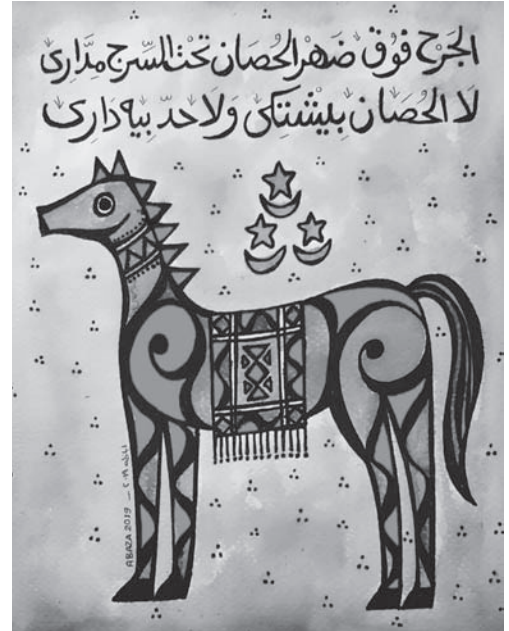 الجَرْح فُوق ضَهْر الحُصَان تَحْت السَّرج مِدَّارِى
لَا الحُصَان بِيِشْتِكِى وَلَا حَدّ بِيه دَارِى
ABAZA 2019